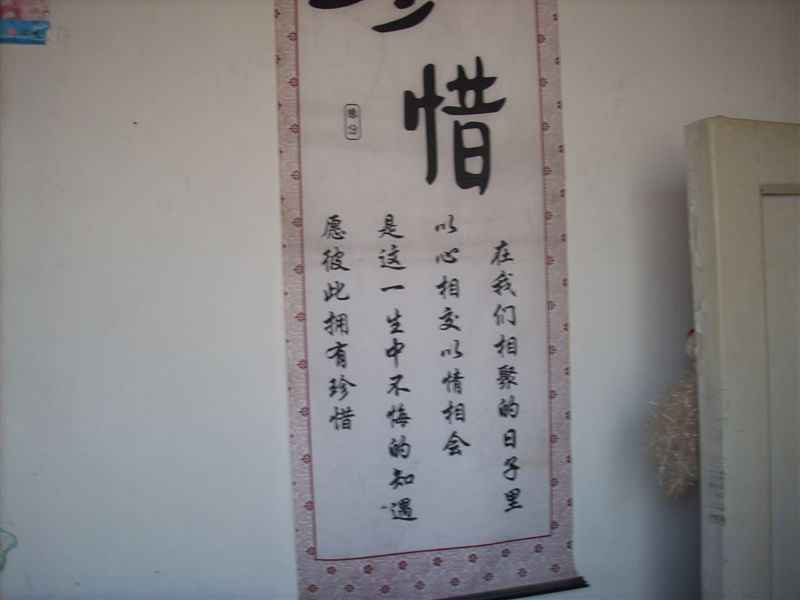 惜
缘分
在我们相聚的日子里
以心相交以情相会
是这一生中不悔的知遇
愿彼此拥有珍惜